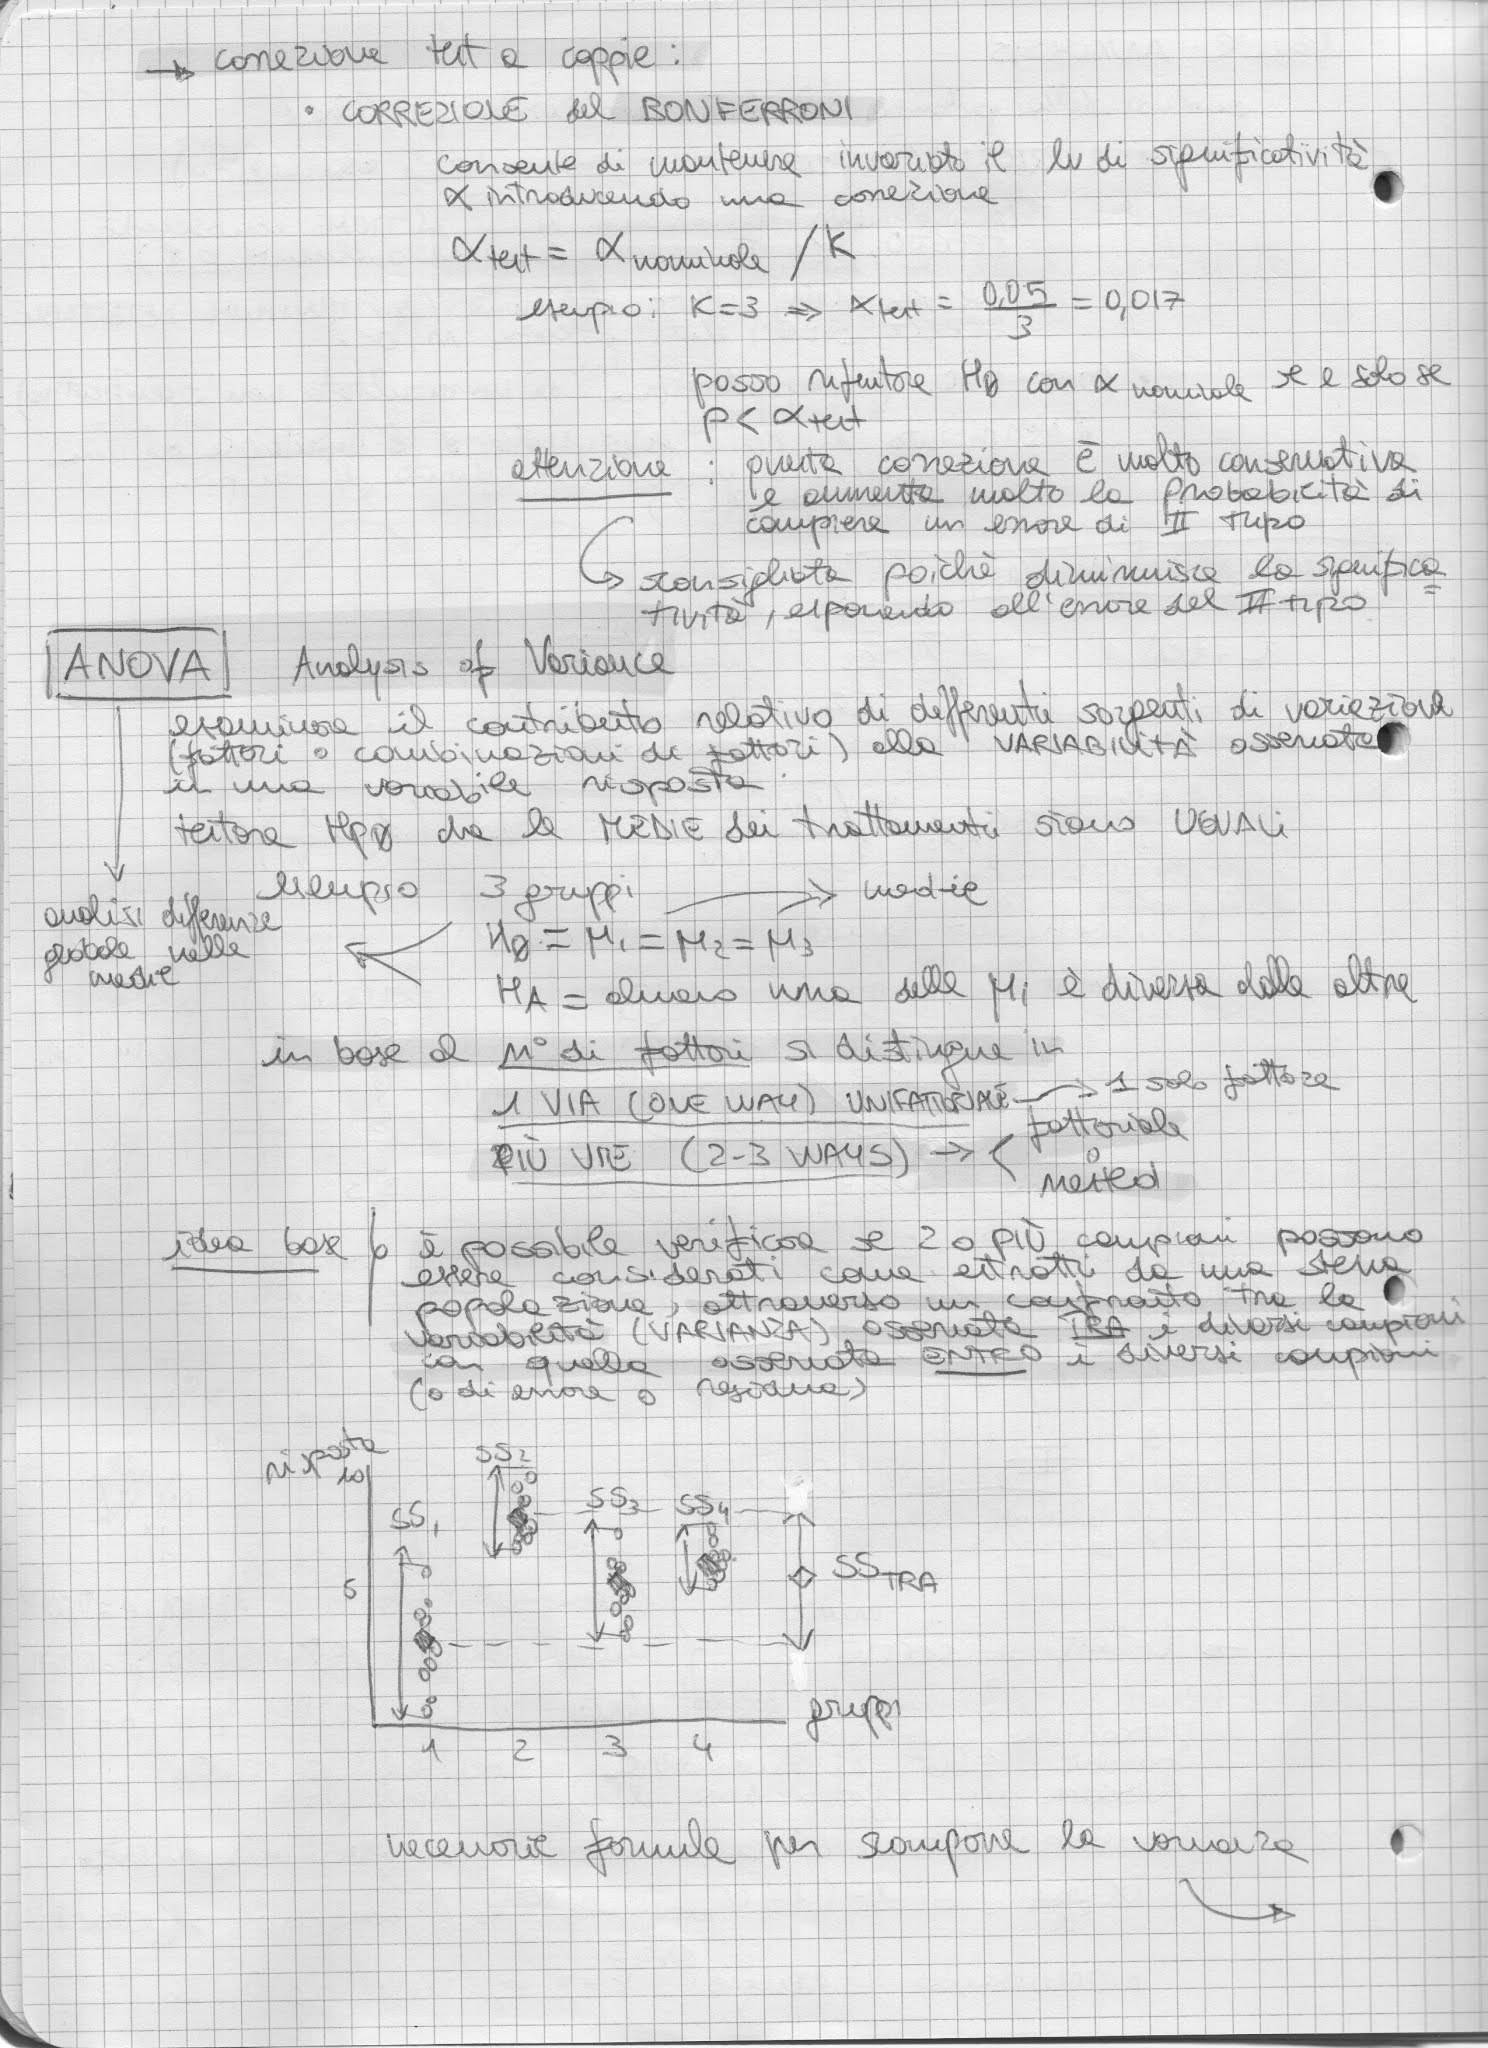 → correzione test a coppie:
• CORREZIONE del BONFERRONI
consente di mantenere invariato il lv di significatività
α introducendo una correzione
α test = α nominale / K
esempio: K=3 ⇒ α test = 0,05/3 = 0,017
posso rifiutare H0 con α nominale se e solo se
p < α test
attenzione : questa correzione è molto conservativa
e aumenta molto la probabilità di
compiere un errore di II tipo
sconsigliata poichè diminuisce la significa=
tività, esponendo all'errore del II tipo
ANOVA Analysis of Variance
esaminare il contributo relativo di differenti sorgenti di variazione
(fattori o combinazioni di fattori) alla VARIABILITÀ osservata
in una variabile risposta.
testare Hp0 che le MEDIE dei trattamenti siano UGUALI
esempio 3 gruppi → medie
analisi differenze
globale nelle
medie
H0 = μ1 = μ2 = μ3
HA = almeno una delle μi è diversa dalle altre
in base al n° di fattori si distingue in
1 VIA (ONE WAY) UNIFATTORIALE → 1 solo fattore
PIÙ VIE (2-3 WAYS) → < fattoriale
o
nested
idea base è possibile verificare se 2 o PIÙ campioni possono
essere considerati come estratti da una stessa
popolazione, attraverso un confronto tra la
variabilità (VARIANZA) osservata TRA i diversi campioni
con quella osservata ENTRO i diversi campioni
(o di errore o residua)
risposta
10
SS1
SS2
SS3
SS4
5
SS TRA
gruppi
1 2 3 4
necessarie formule per scomporre la varianza